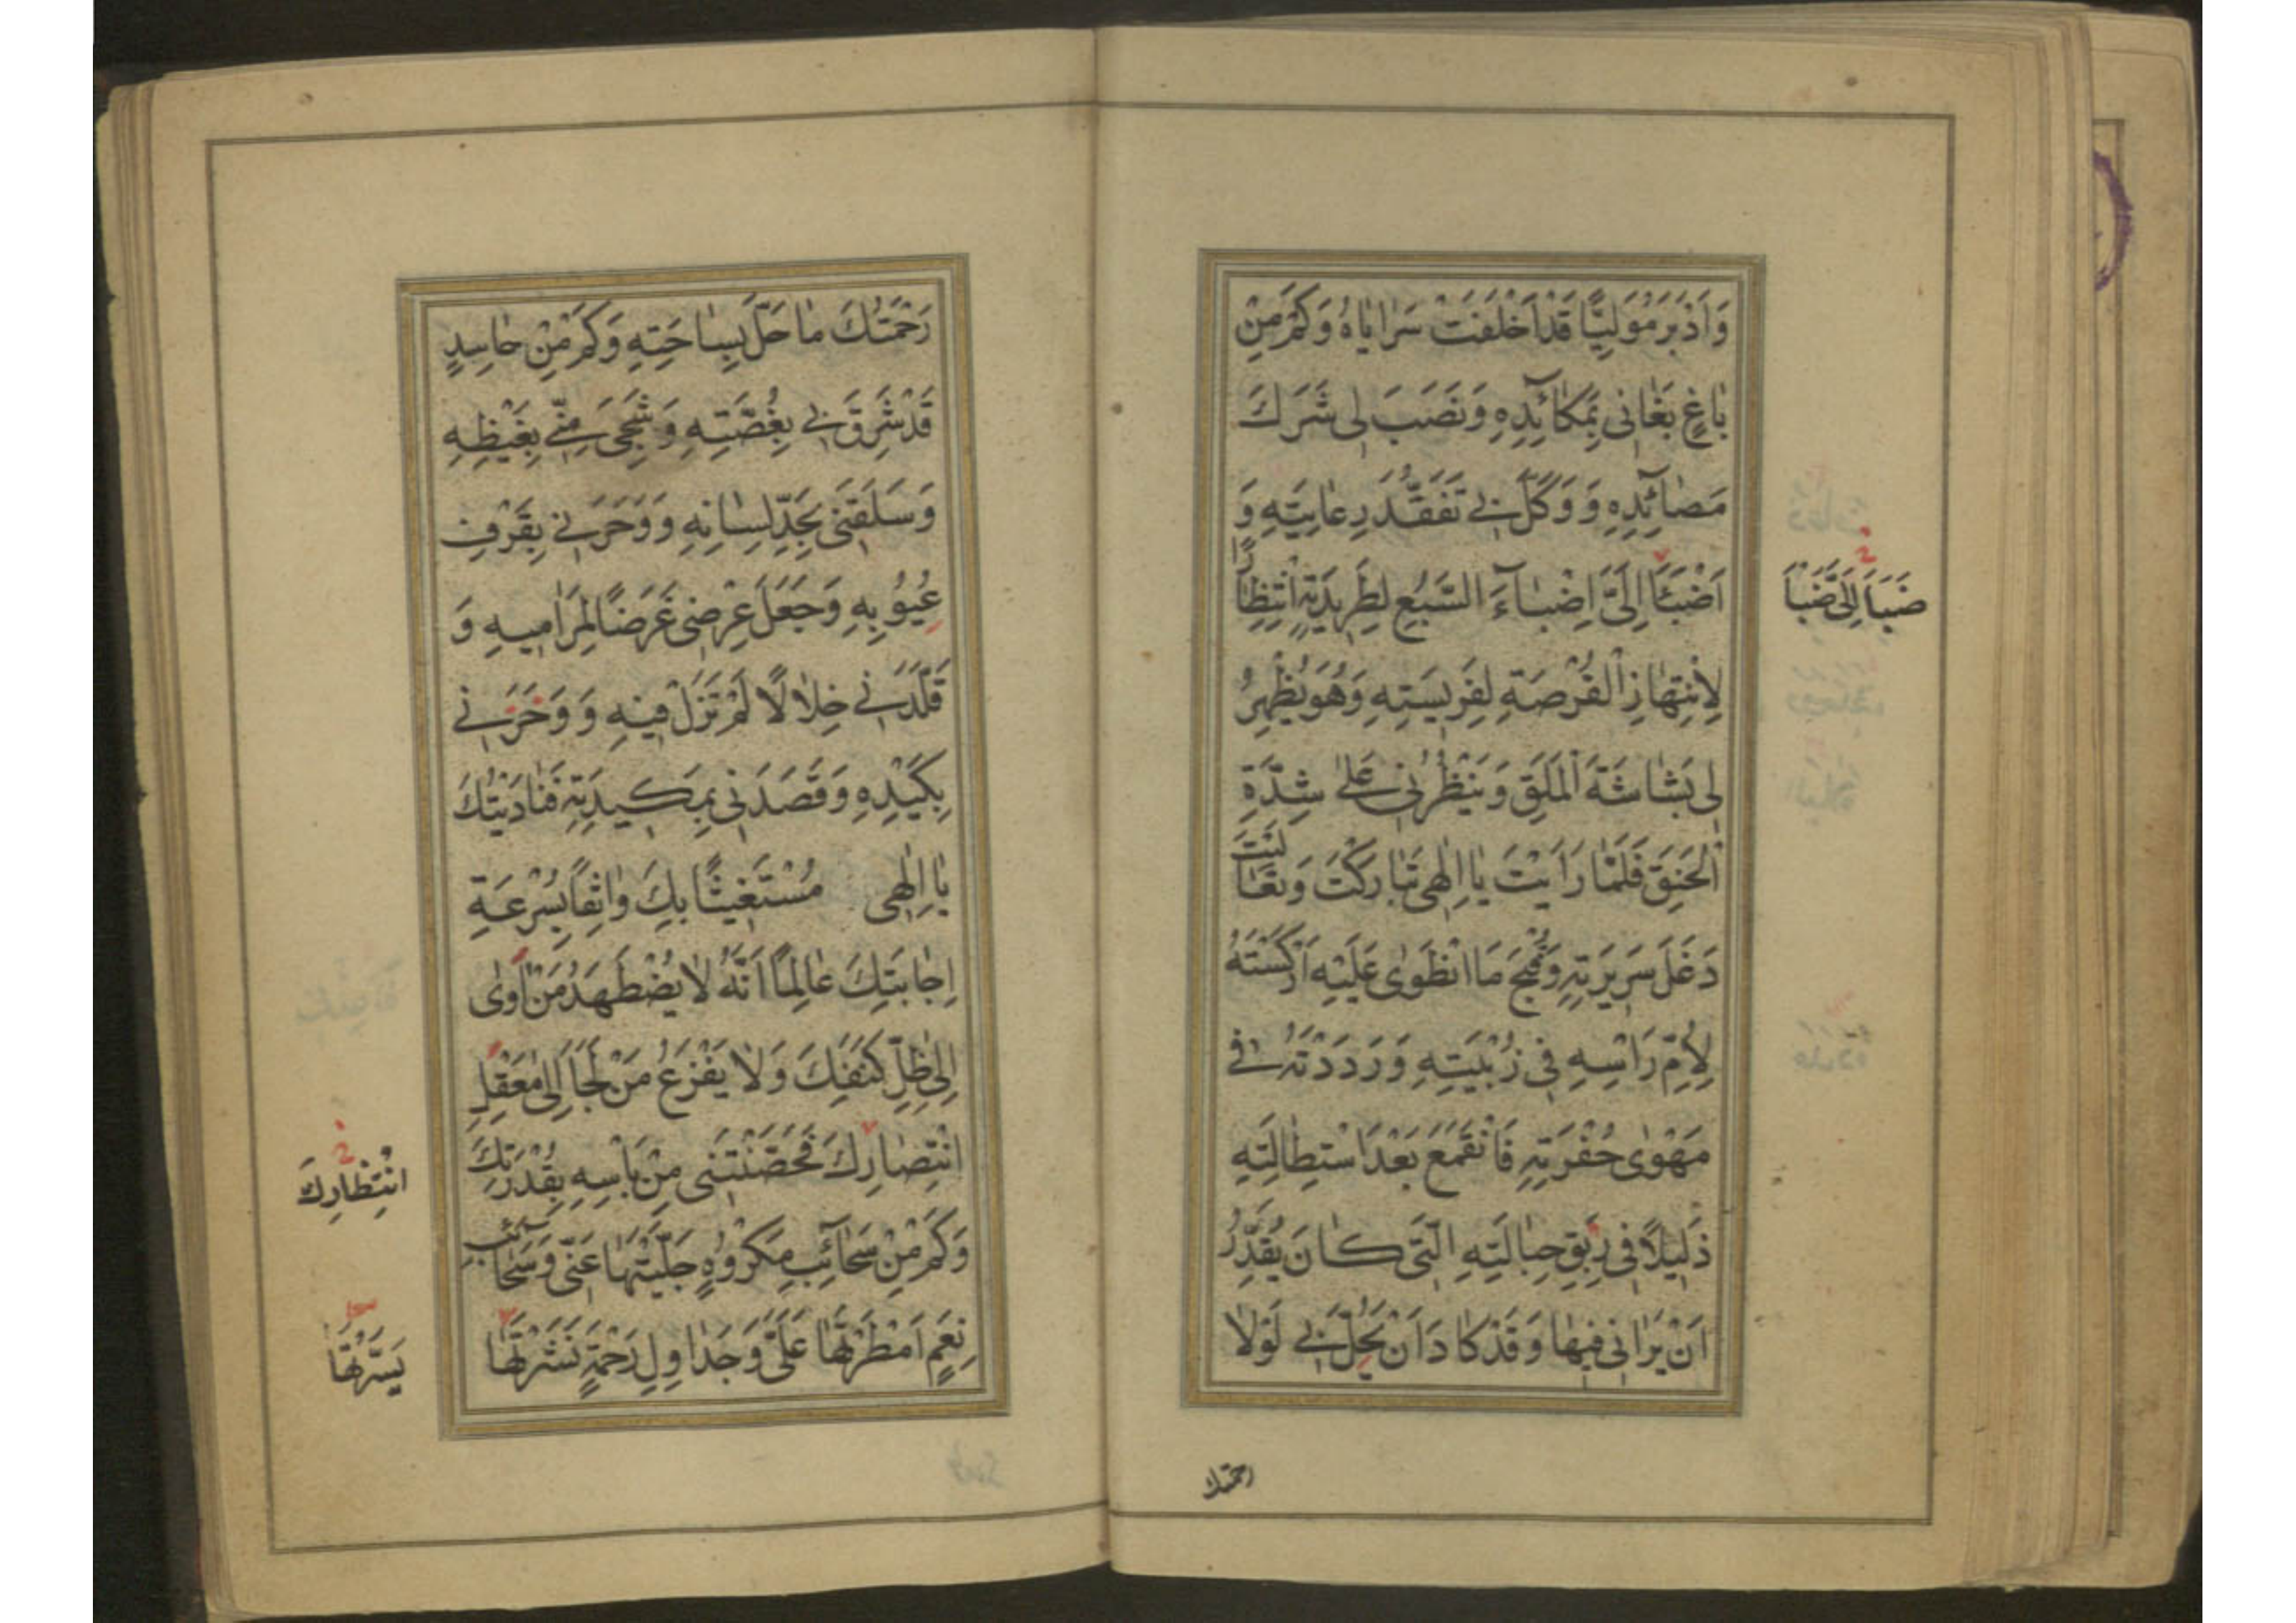 وَاَدْبَرَ مُوَلِّيًا قَدْ اَخْلَفَتْ سَرٰايٰاهُ وَكَمْ مِنْ
بٰاغٍ بَغٰانى بِمَكٰائِدِهِ وَنَصَبَ لى شَرَكَ
مَصٰآئِدِهِ وَ وَكَّلَ بى تَفَقُّدَ رِعٰايَتِهِ وَ
اَضْبَأَ اِلَىَّ اِضْبٰآءَ السَّبُعِ لِطَرِيدَتِهِ اِنْتِظٰارًا
لِاِنْتِهٰازِ الْفُرْصَةِ لِفَرِيسَتِهِ وَهُوَ يُظْهِرُ
لى بَشٰاشَةَ الْمَلَقِ وَيَنْظُرُنى عَلىٰ شِدَّةِ
الْحَنَقِ فَلَمّٰا رَاَيْتَ يٰا اِلٰهى تَبٰارَكْتَ وَتَعٰالَيْتَ
دَغَلَ سَرِيرَتِهِ وَقُبْحَ مَا انْطَوىٰ عَلَيْهِ اَرْكَسْتَهُ
لِاُمِّ رَاْسِهِ فى زُبْيَتِهِ وَرَدَدْتَهُ فى
مَهْوٰى حُفْرَتِهِ فَانْقَمَعَ بَعْدَ اسْتِطٰالَتِهِ
ذَلِيلًا فى رِبَقِ حِبٰالَتِهِ الَّتى كٰانَ يُقَدِّرُ
اَنْ يَرٰانى فيهٰا وَقَدْ كٰادَ اَنْ يَحُلَّ بى لَوْلٰا
ضَبَأَ اِلَىَّ ضَبْأَ
رحمتك
رَحْمَتُكَ مٰا حَلَّ بِسٰاحَتِهِ وَكَمْ مِنْ حٰاسِدٍ
قَدْ شَرِقَ بى بِغُصَّتِهِ وَشَجِىَ مِنّى بِغَيْظِهِ
وَسَلَقَنى بِحَدِّ لِسٰانِهِ وَ وَحَرَنى بِقَرْفِ
عُيُوبِهِ وَجَعَلَ عِرْضى غَرَضًا لِمَرٰاميهِ وَ
قَلَّدَنى خِلٰالًا لَمْ تَزَلْ فيهِ وَ وَحَرَنى
بِكَيْدِهِ وَقَصَدَنى بِمَكيدَتِهِ فَنٰادَيْتُكَ
يٰا اِلٰهى مُسْتَغيثًا بِكَ وٰاثِقًا بِسُرْعَةِ
اِجٰابَتِكَ عٰالِمًا اَنَّهُ لٰا يُضْطَهَدُ مَنْ اَوٰى
اِلىٰ ظِلِّ كَنَفِكَ وَلٰا يَفْزَعُ مَنْ لَجَأَ اِلىٰ مَعْقِلِ
انْتِصٰارِكَ فَحَصَّنْتَنى مِنْ بَاْسِهِ بِقُدْرَتِكَ
وَكَمْ مِنْ سَحٰآئِبِ مَكْرُوهٍ جَلَّيْتَهٰا عَنّى وَسَحٰآئِبِ
نِعَمٍ اَمْطَرْتَهٰا عَلَىَّ وَجَدٰاوِلِ رَحْمَةٍ نَشَرْتَهٰا
انْتِظٰارِكَ
يَسَّرْتَهٰا